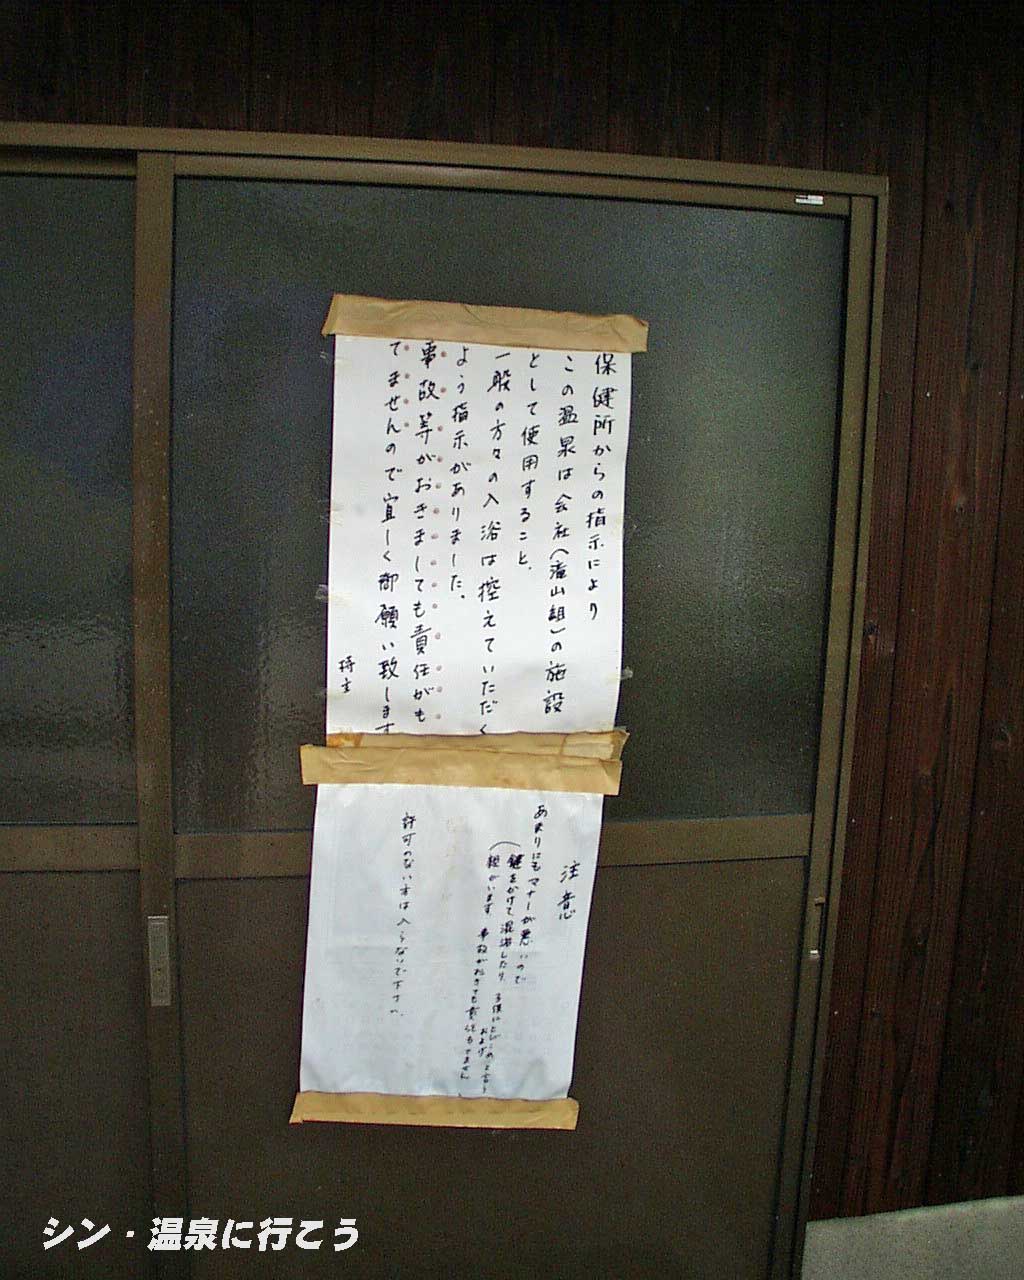 保健所からの指示により
この温泉は会社(滝山組)の施設
として使用すること、
一般の方々の入浴は控えていただく
よう指示がありました。
事故等がおきましても責任がも
てませんので宜しく御願い致します
持主
注意
あまりにもマナーが悪いので
(鍵をかけて混浴したり、子供にとびこめ
およげと言う
親がいます 事故がおきても責任もてません
許可のない方は入らないで下さい。
シン・温泉に行こう